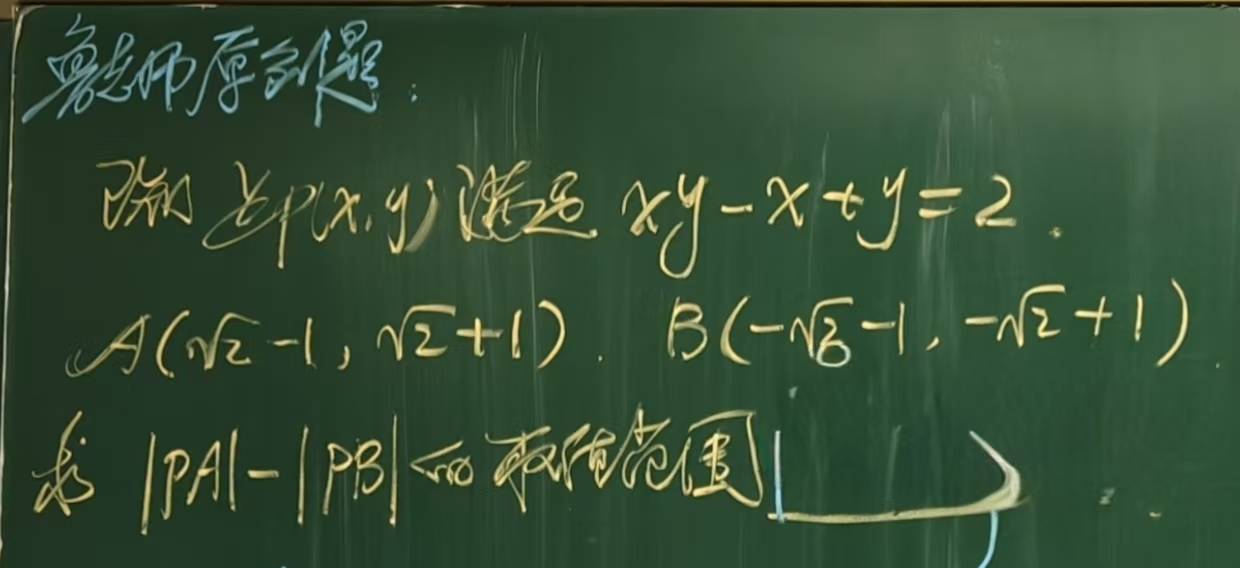 鲁老师原创题:
已知 点P(x,y)满足 xy-x+y=2.
A(√2-1, √2+1). B(-√2-1, -√2+1).
求 |PA|-|PB| 的取值范围